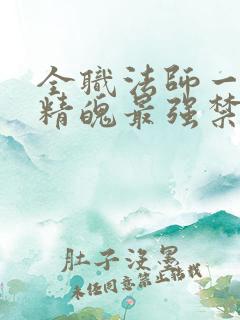 全職法師一
精魄最强禁
肚子沒墨
未任同意禁止轉載